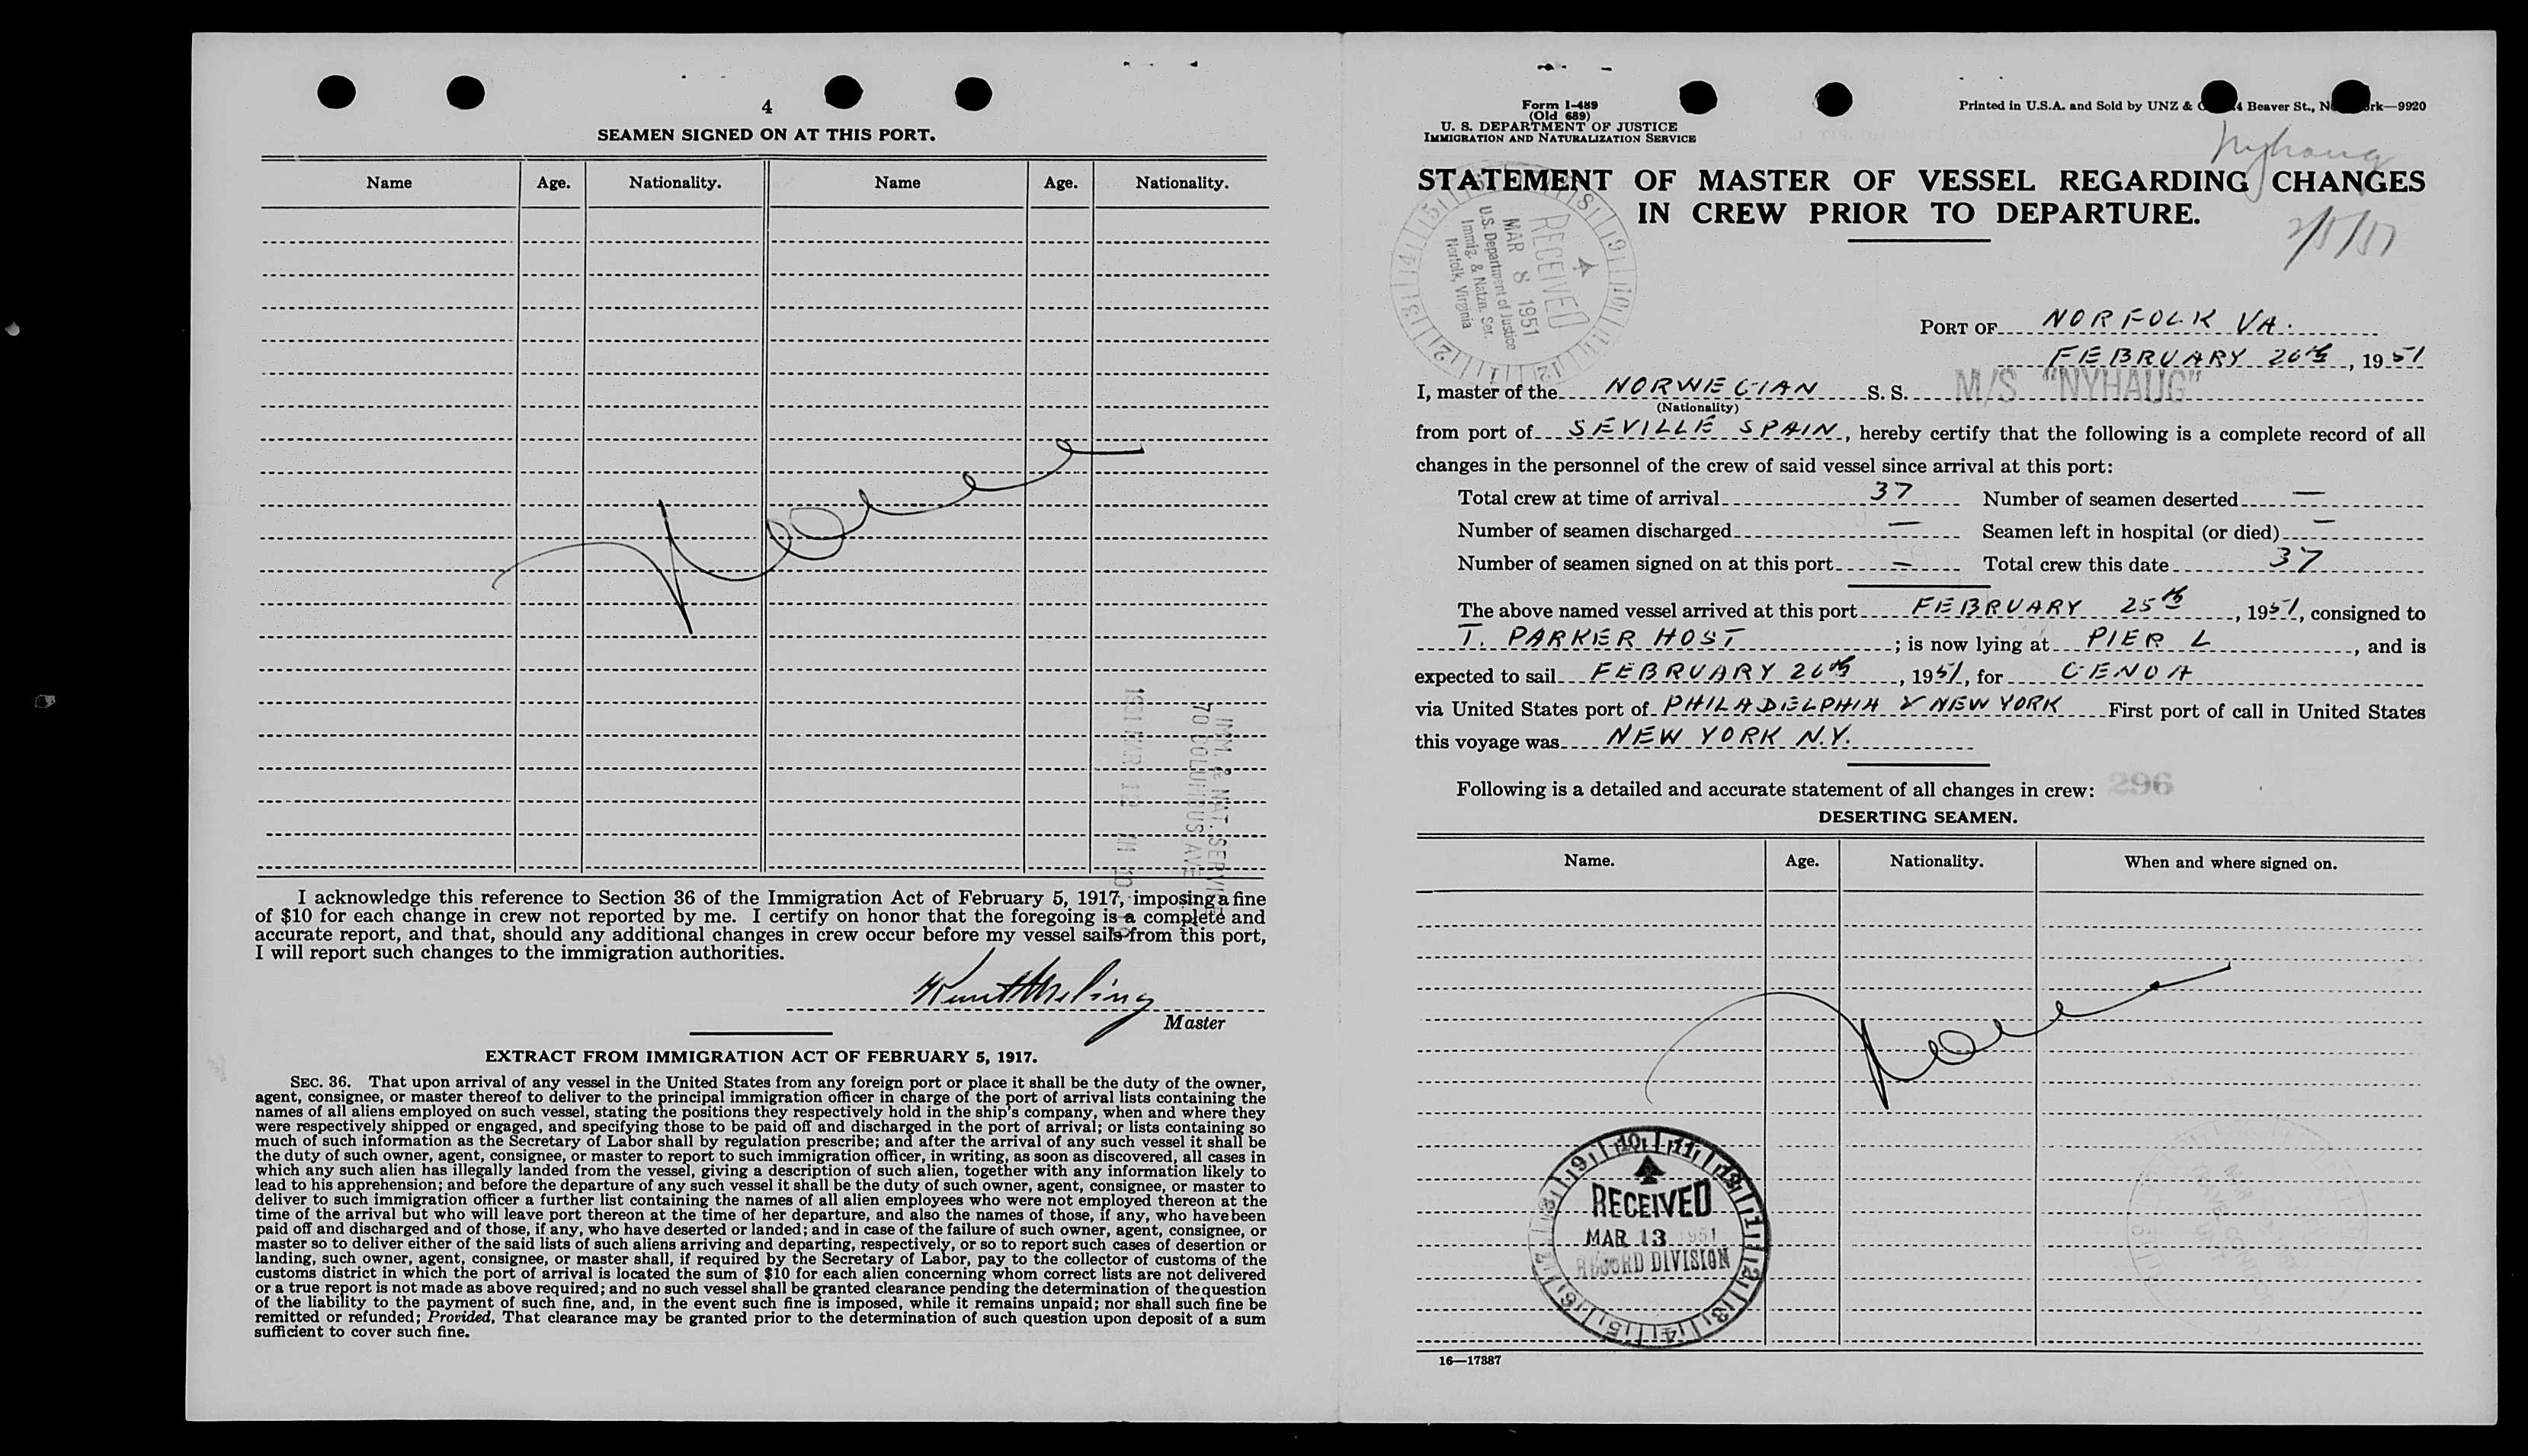 4
SEAMEN SIGNED ON AT THIS PORT.
Name Age. Nationality. Name Age. Nationality.
None
1951 MAR 12 AM 10
IMM. & NAT. SERVICE
70 COLUMBUS AVE
I acknowledge this reference to Section 36 of the Immigration Act of February 5, 1917, imposing a fine
of $10 for each change in crew not reported by me. I certify on honor that the foregoing is a complete and
accurate report, and that, should any additional changes in crew occur before my vessel sails from this port,
I will report such changes to the immigration authorities.
Master
EXTRACT FROM IMMIGRATION ACT OF FEBRUARY 5, 1917.
SEC. 36. That upon arrival of any vessel in the United States from any foreign port or place it shall be the duty of the owner,
agent, consignee, or master thereof to deliver to the principal immigration officer in charge of the port of arrival lists containing the
names of all aliens employed on such vessel, stating the positions they respectively hold in the ship's company, when and where they
were respectively shipped or engaged, and specifying those to be paid off and discharged in the port of arrival; or lists containing so
much of such information as the Secretary of Labor shall by regulation prescribe; and after the arrival of any such vessel it shall be
the duty of such owner, agent, consignee, or master to report to such immigration officer, in writing, as soon as discovered, all cases in
which any such alien has illegally landed from the vessel, giving a description of such alien, together with any information likely to
lead to his apprehension; and before the departure of any such vessel it shall be the duty of such owner, agent, consignee, or master to
deliver to such immigration officer a further list containing the names of all alien employees who were not employed thereon at the
time of the arrival but who will leave port thereon at the time of her departure, and also the names of those, if any, who have been
paid off and discharged and of those, if any, who have deserted or landed; and in case of the failure of such owner, agent, consignee, or
master so to deliver either of the said lists of such aliens arriving and departing, respectively, or so to report such cases of desertion or
landing, such owner, agent, consignee, or master shall, if required by the Secretary of Labor, pay to the collector of customs of the
customs district in which the port of arrival is located the sum of $10 for each alien concerning whom correct lists are not delivered
or a true report is not made as above required; and no such vessel shall be granted clearance pending the determination of the question
of the liability to the payment of such fine, and, in the event such fine is imposed, while it remains unpaid; nor shall such fine be
remitted or refunded; Provided, That clearance may be granted prior to the determination of such question upon deposit of a sum
sufficient to cover such fine.
Form I-489
(Old 689)
U. S. DEPARTMENT OF JUSTICE
IMMIGRATION AND NATURALIZATION SERVICE
Printed in U.S.A. and Sold by UNZ & 4 Beaver St., rk—9920
Nyhaug
STATEMENT OF MASTER OF VESSEL REGARDING CHANGES
IN CREW PRIOR TO DEPARTURE.
RECEIVED
MAR 8 1951
U.S. Department of Justice
Immig. & Natzn. Ser.
Norfolk, Virginia
PORT OF NORFOLK VA.
FEBRUARY 26th, 1951
I, master of the NORWEGIAN S. S. M/S "NYHAUG"
(Nationality)
from port of SEVILLE SPAIN, hereby certify that the following is a complete record of all
changes in the personnel of the crew of said vessel since arrival at this port:
Total crew at time of arrival 37 Number of seamen deserted —
Number of seamen discharged — Seamen left in hospital (or died) —
Number of seamen signed on at this port — Total crew this date 37
The above named vessel arrived at this port FEBRUARY 25th, 1951, consigned to
T. PARKER HOST; is now lying at PIER L, and is
expected to sail FEBRUARY 26th, 1951, for GENOA
via United States port of PHILADELPHIA & NEW YORK First port of call in United States
this voyage was NEW YORK N.Y.
Following is a detailed and accurate statement of all changes in crew: 296
DESERTING SEAMEN.
Name. Age. Nationality. When and where signed on.
None
RECEIVED
MAR 13 1951
RECORD DIVISION
16—17387